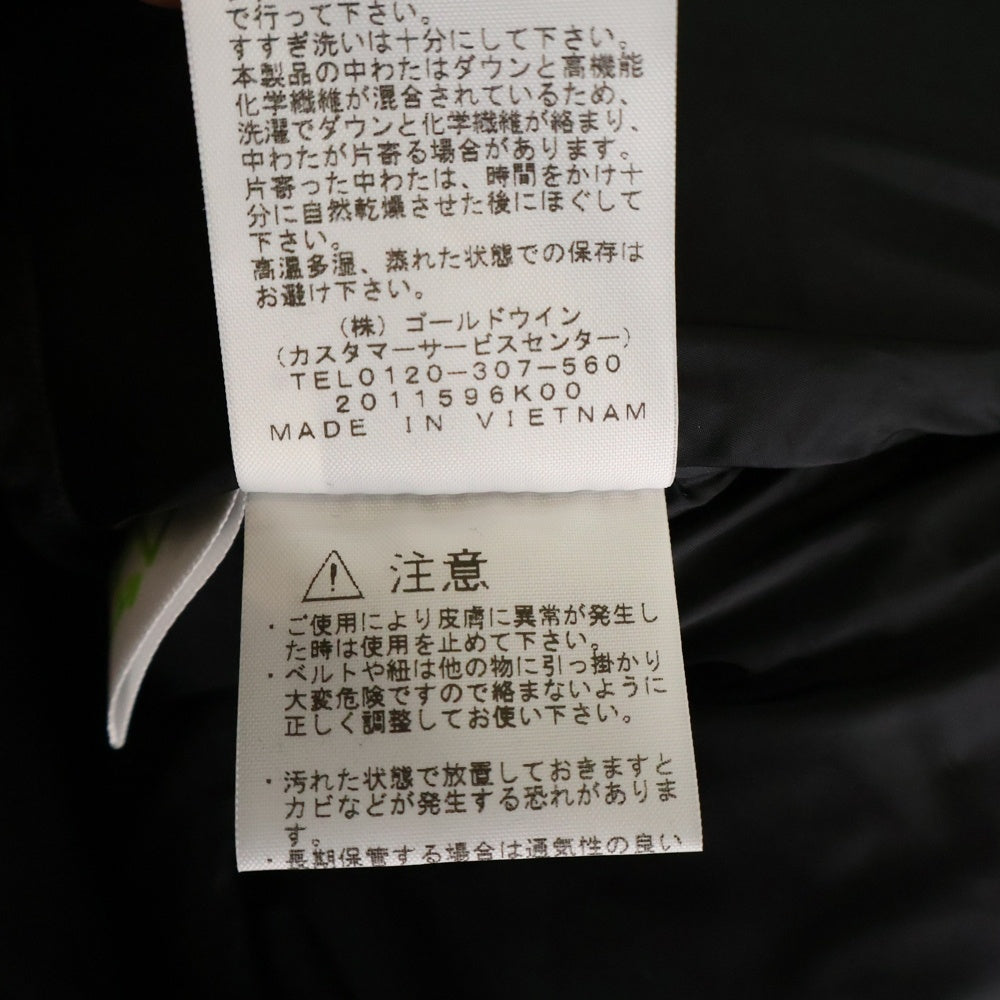 で行って下さい。
すすぎ洗いは十分にして下さい。
本製品の中わたはダウンと高機能
化学繊維が混合されているため、
洗濯でダウンと化学繊維が絡まり、
中わたが片寄る場合があります。
片寄った中わたは、時間をかけ十
分に自然乾燥させた後にほぐして
下さい。
高温多湿、蒸れた状態での保存は
お避け下さい。
（株）ゴールドウイン
（カスタマーサービスセンター）
TEL0120-307-560
2011596K00
MADE IN VIETNAM
注意
・ご使用により皮膚に異常が発生し
た時は使用を止めて下さい。
・ベルトや紐は他の物に引っ掛かり
大変危険ですので絡まないように
正しく調整してお使い下さい。
・汚れた状態で放置しておきますと
カビなどが発生する恐れがありま
す。
・長期保管する場合は通気性の良い